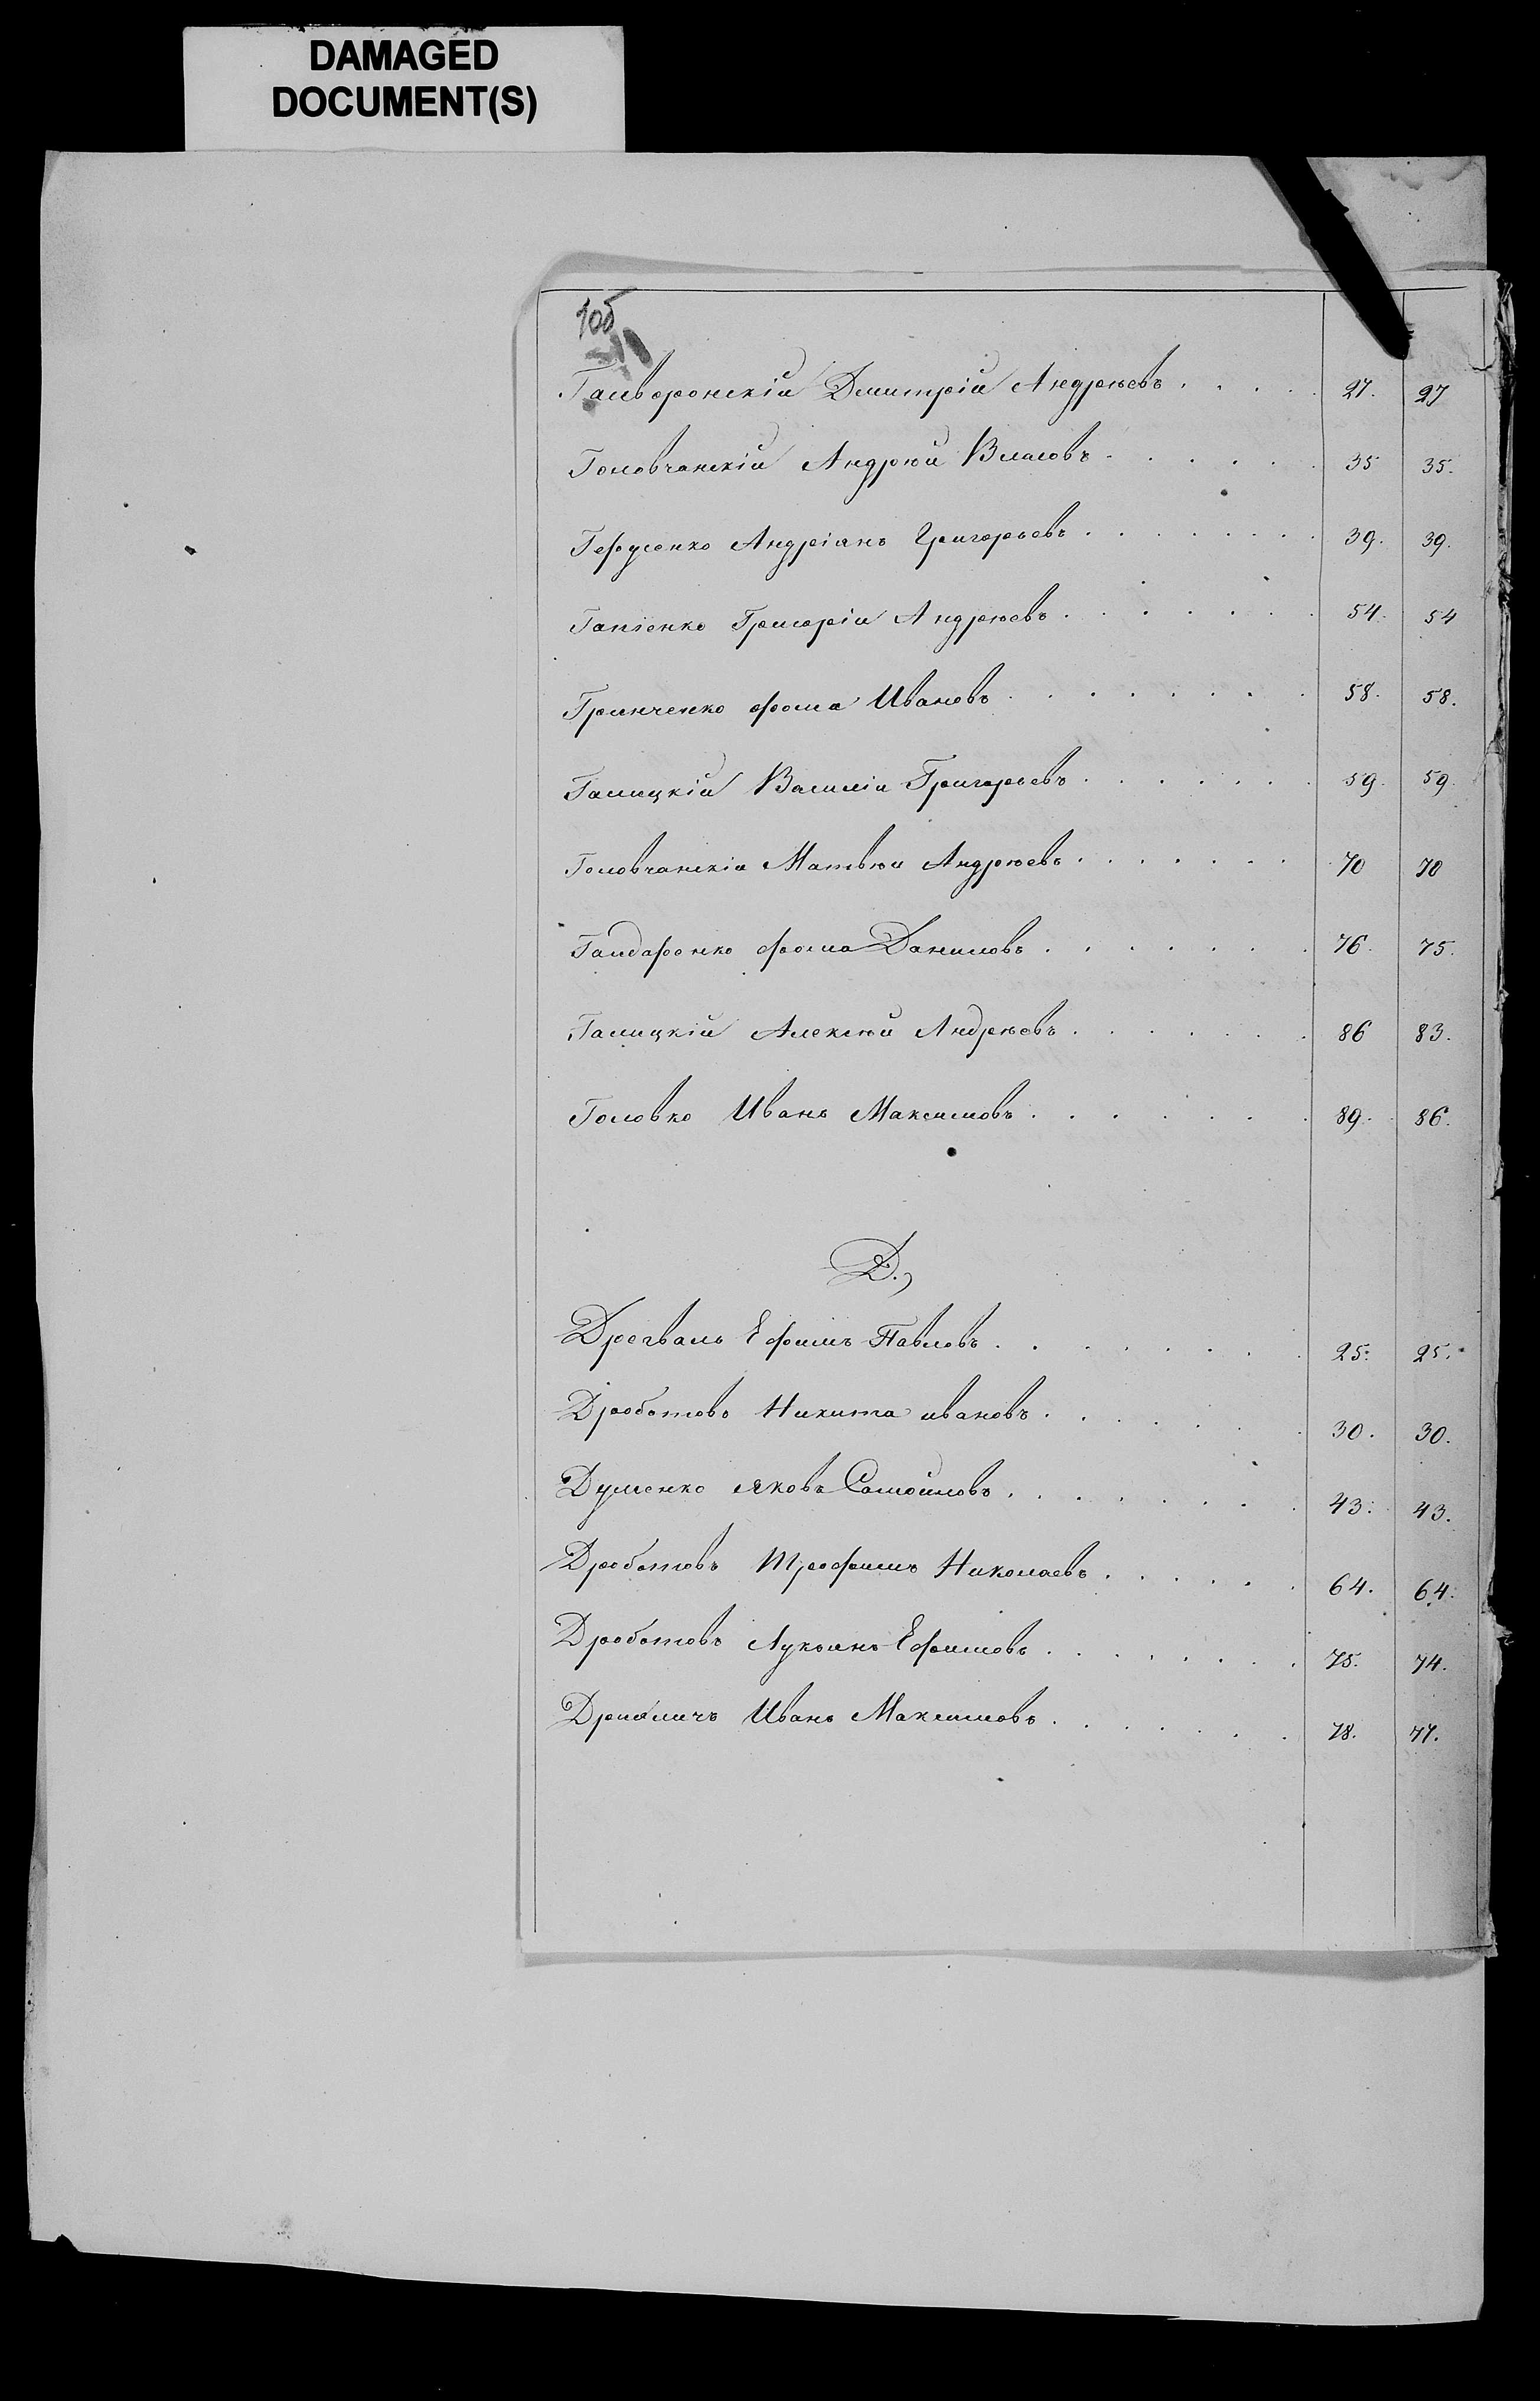 DAMAGED
DOCUMENT(S)
10б
Гайворонскій Дмитрій Андрѣевъ . . . . 27. 27
Головчанскій Андрѣй Власовъ . . . . . . 35 35.
Герусенко Андріанъ Григорьевъ . . . . . . . 39. 39.
Гапіенко Григорій Андрѣевъ . . . . . . . 54. 54
Гринченко Фома Ивановъ . . . . . . . . 58. 58.
Галицкій Василій Григорьевъ . . . . . . 59. 59.
Головчанскій Матвѣй Андрѣевъ . . . . . . . 70 70
Гайдаренко Фома Даниловъ . . . . . . . 76. 75.
Галицкій Алексѣй Андрѣевъ . . . . . . . 86 83.
Головко Иванъ Максимовъ . . . . . . . 89. 86.
Д.
Дрегваль Ефимъ Павловъ . . . . . . . . 25. 25.
Дроботовъ Никита ивановъ . . . . . . . 30. 30.
Думенко Яковъ Самойловъ . . . . . . . . 43. 43.
Дроботовъ Трофимъ Николаевъ . . . . . . 64. 64.
Дроботовъ Лукьянъ Ефимовъ . . . . . . . . 75. 74.
Иванъ Максимовъ . . . . . . . 78. 77.